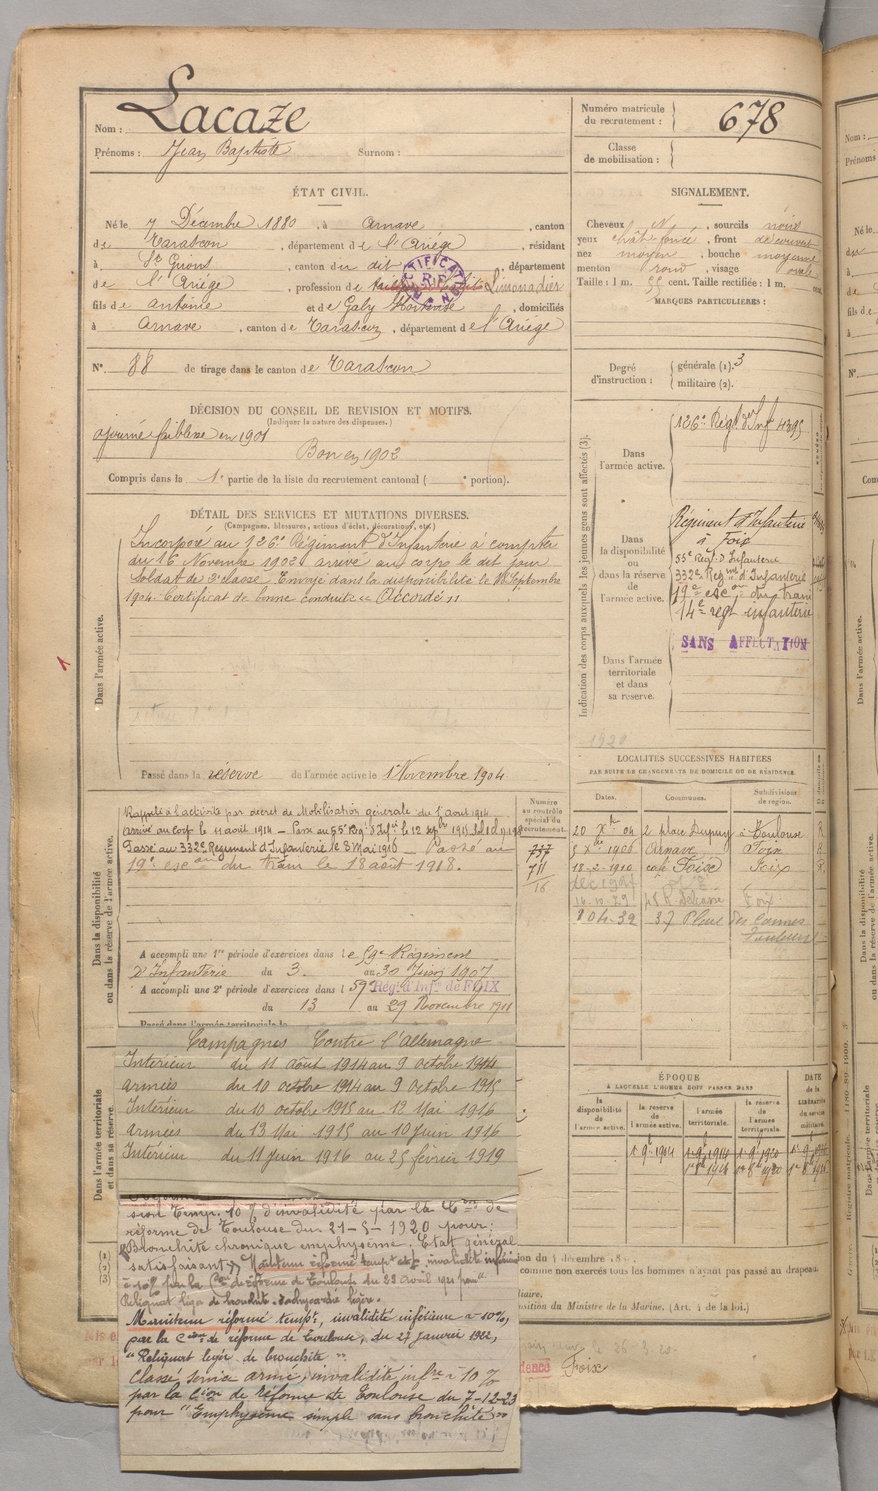 Nom : Lacaze
Prénoms : Jean Baptiste Surnom :
Numéro matricule du recrutement : 678
Classe de mobilisation :
ÉTAT CIVIL.
Né le 7 Décembre 1880, à Arnave, canton
de Tarascon, département de l'Ariège, résidant
à St Girons, canton du dit, département
de l'Ariège, profession de Limonadier
fils de Antoine et de Galy Hortense, domiciliés
à Arnave, canton de Tarascon, département de l'Ariège
RECTIFICATION
R.F.
N° 88 de tirage dans le canton de Tarascon
DÉCISION DU CONSEIL DE REVISION ET MOTIFS.
(Indiquer la nature des dispenses.)
ajourné faiblesse en 1901
Bon en 1902
Compris dans la 1e partie de la liste du recrutement cantonal ( e portion).
DÉTAIL DES SERVICES ET MUTATIONS DIVERSES.
(Campagnes, blessures, actions d'éclat, décorations, etc.)
Dans l'armée active.
Incorporé au 126e Régiment d'Infanterie à compter
du 16 Novembre 1902 arrivé au corps le dit jour
Soldat de 2e classe. Envoyé dans la disponibilité le 18 Septembre
1904. Certificat de bonne conduite "Accordé"
Passé dans la réserve de l'armée active le 1er Novembre 1904
SIGNALEMENT.
Cheveux N, sourcils noirs
yeux chât foncé, front découvert
nez moyen, bouche moyenne
menton rond, visage ovale
Taille : 1 m. 55 cent. Taille rectifiée : 1 m. cent.
MARQUES PARTICULIÈRES :
Degré d'instruction : générale (1). 3
militaire (2).
Indication des corps auxquels les jeunes gens sont affectés (3).
Dans l'armée active.
126e Régt d'Inf 4395
Dans la disponibilité ou dans la réserve de l'armée active.
Régiment d'Infanterie
à Foix
55e Régt d'Infanterie
332e Régmt d'Infanterie
19e esc on du train
14e regt infanterie
SANS AFFECTATION
Dans l'armée territoriale et dans sa reserve.
1920
LOCALITÉS SUCCESSIVES HABITÉES
PAR SUITE DE CHANGEMENTS DE DOMICILE OU DE RÉSIDENCE.
Dates. Communes. Subdivisions de région.
20 Xbre 04 2 place Dupuy à Toulouse R
5 Xbre 1906 Arnave Foix R
18-2-1910 café Foix R
16.10.29 Foix
8 04-32 37 des Carmes
Toulouse
Numéro au contrôle spécial du recrutement.
737
711
16
Dans la disponibilité ou dans la réserve de l'armée active.
Rappelé à l'activité par décret de Mobilisation générale du 1 août 1914
Arrivé au corps le 11 août 1914 – Passé au 55e Rég. d'Infrie le 12 1915
Passé au 332e Régiment d'Infanterie le 8 Mai 1916 – Passé au
19e esc on du train le 18 août 1918.
A accompli une 1re période d'exercices dans le 59e Régiment
D'Infanterie du 3. au 30 Juin 1907
A accompli une 2e période d'exercices dans l 59e Rég. d'Inf. de FOIX
du 13 au 29 Novembre 1911
Passé dans l'armée territoriale le
Dans l'armée territoriale et dans sa réserve.
Campagnes Contre l'Allemagne
Intérieur du 11 août 1914 au 9 octobre 1914
armées du 10 octobre 1914 au 9 Octobre 1915
Intérieur du 10 octobre 1915 au 12 Mai 1916
armées du 13 Mai 1915 au 10 Juin 1916
Intérieur du 11 juin 1916 au 25 février 1919
ÉPOQUE
A LAQUELLE L'HOMME DOIT PASSER DANS
la disponibilité de l'armée active. la reserve de l'armée active. l'armée territoriale. la réserve de l'armée territoriale.
DATE de la LIBÉRATION du service militaire.
sion Temp. 10 % d'invalidité par la Con de
réforme de Toulouse du 21-5-1920 pour:
Bronchite chronique emphysème. Etat général
satisfaisant. Maintenu réformé tempre invalidité inférieure
à 10% par la Con de réforme de Toulouse du 28 avril 1921 pour
Reliquat léger de bronchite. Tachycardie légère.
Maintenu réformé tempre, invalidité inférieure à 10%,
par la Con de réforme de Toulouse, du 27 janvier 1922,
"Reliquat léger de bronchite".
Classé service armé, invalidité infre à 10 %
par la Con de Réforme de Toulouse du 7-12-23
pour "Emphysème simple sans bronchite"
comme non exercés tous les hommes n'ayant pas passé au drapeau.
du Ministre de la Marine. (Art. 4 de la loi.)
Foix